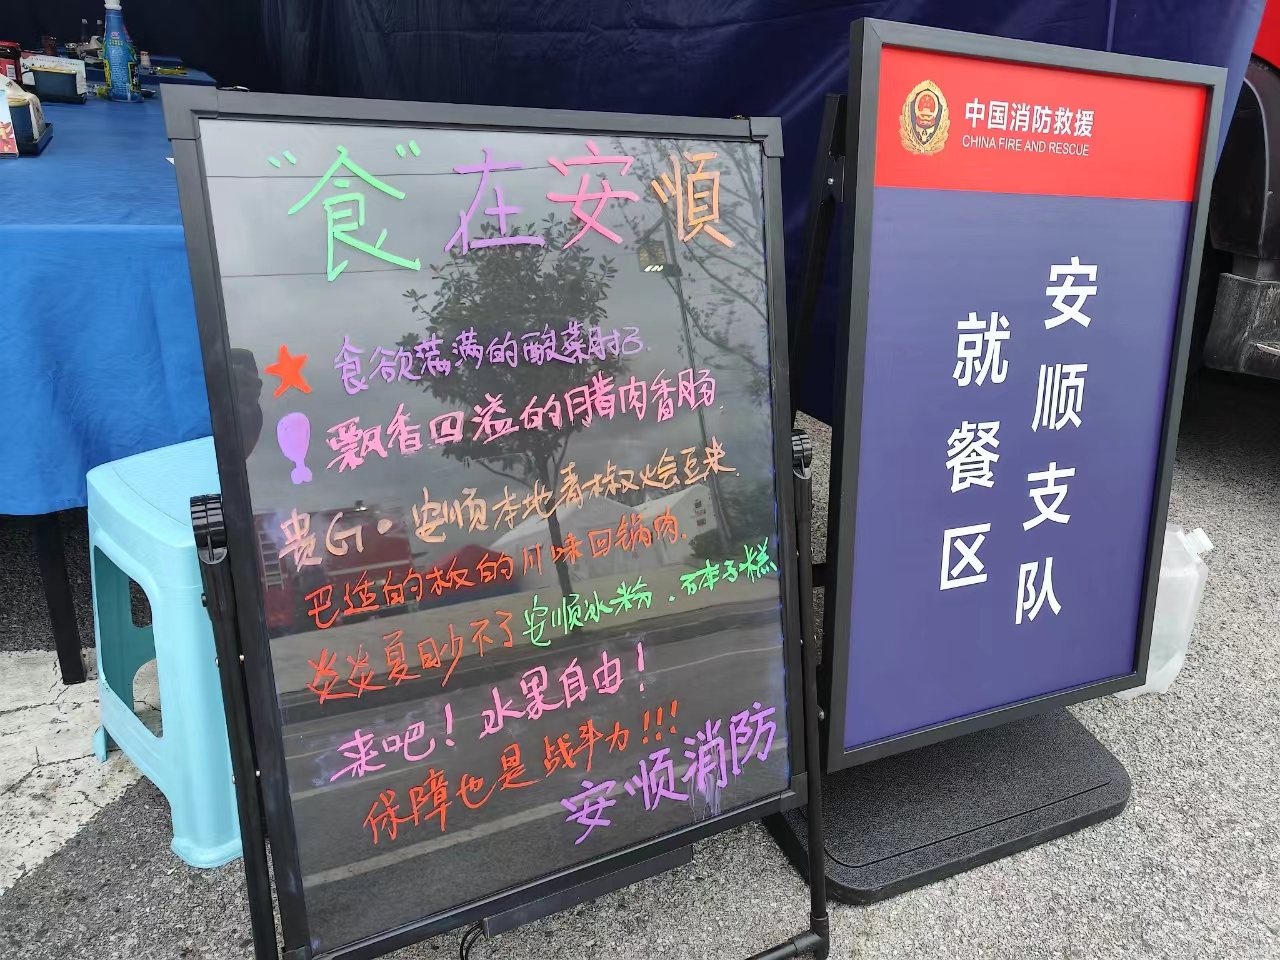 “食”在安順
食欲满满的酸菜肘子.
飘香四溢的腊肉香肠.
贵G·安顺本地青椒烩豆米.
巴适的板的川味回锅肉.
炎炎夏日少不了安顺冰粉.砵子糕
来吧！水果自由！
保障也是战斗力!!!
安顺消防
中国消防救援
CHINA FIRE AND RESCUE
安顺支队
就餐区